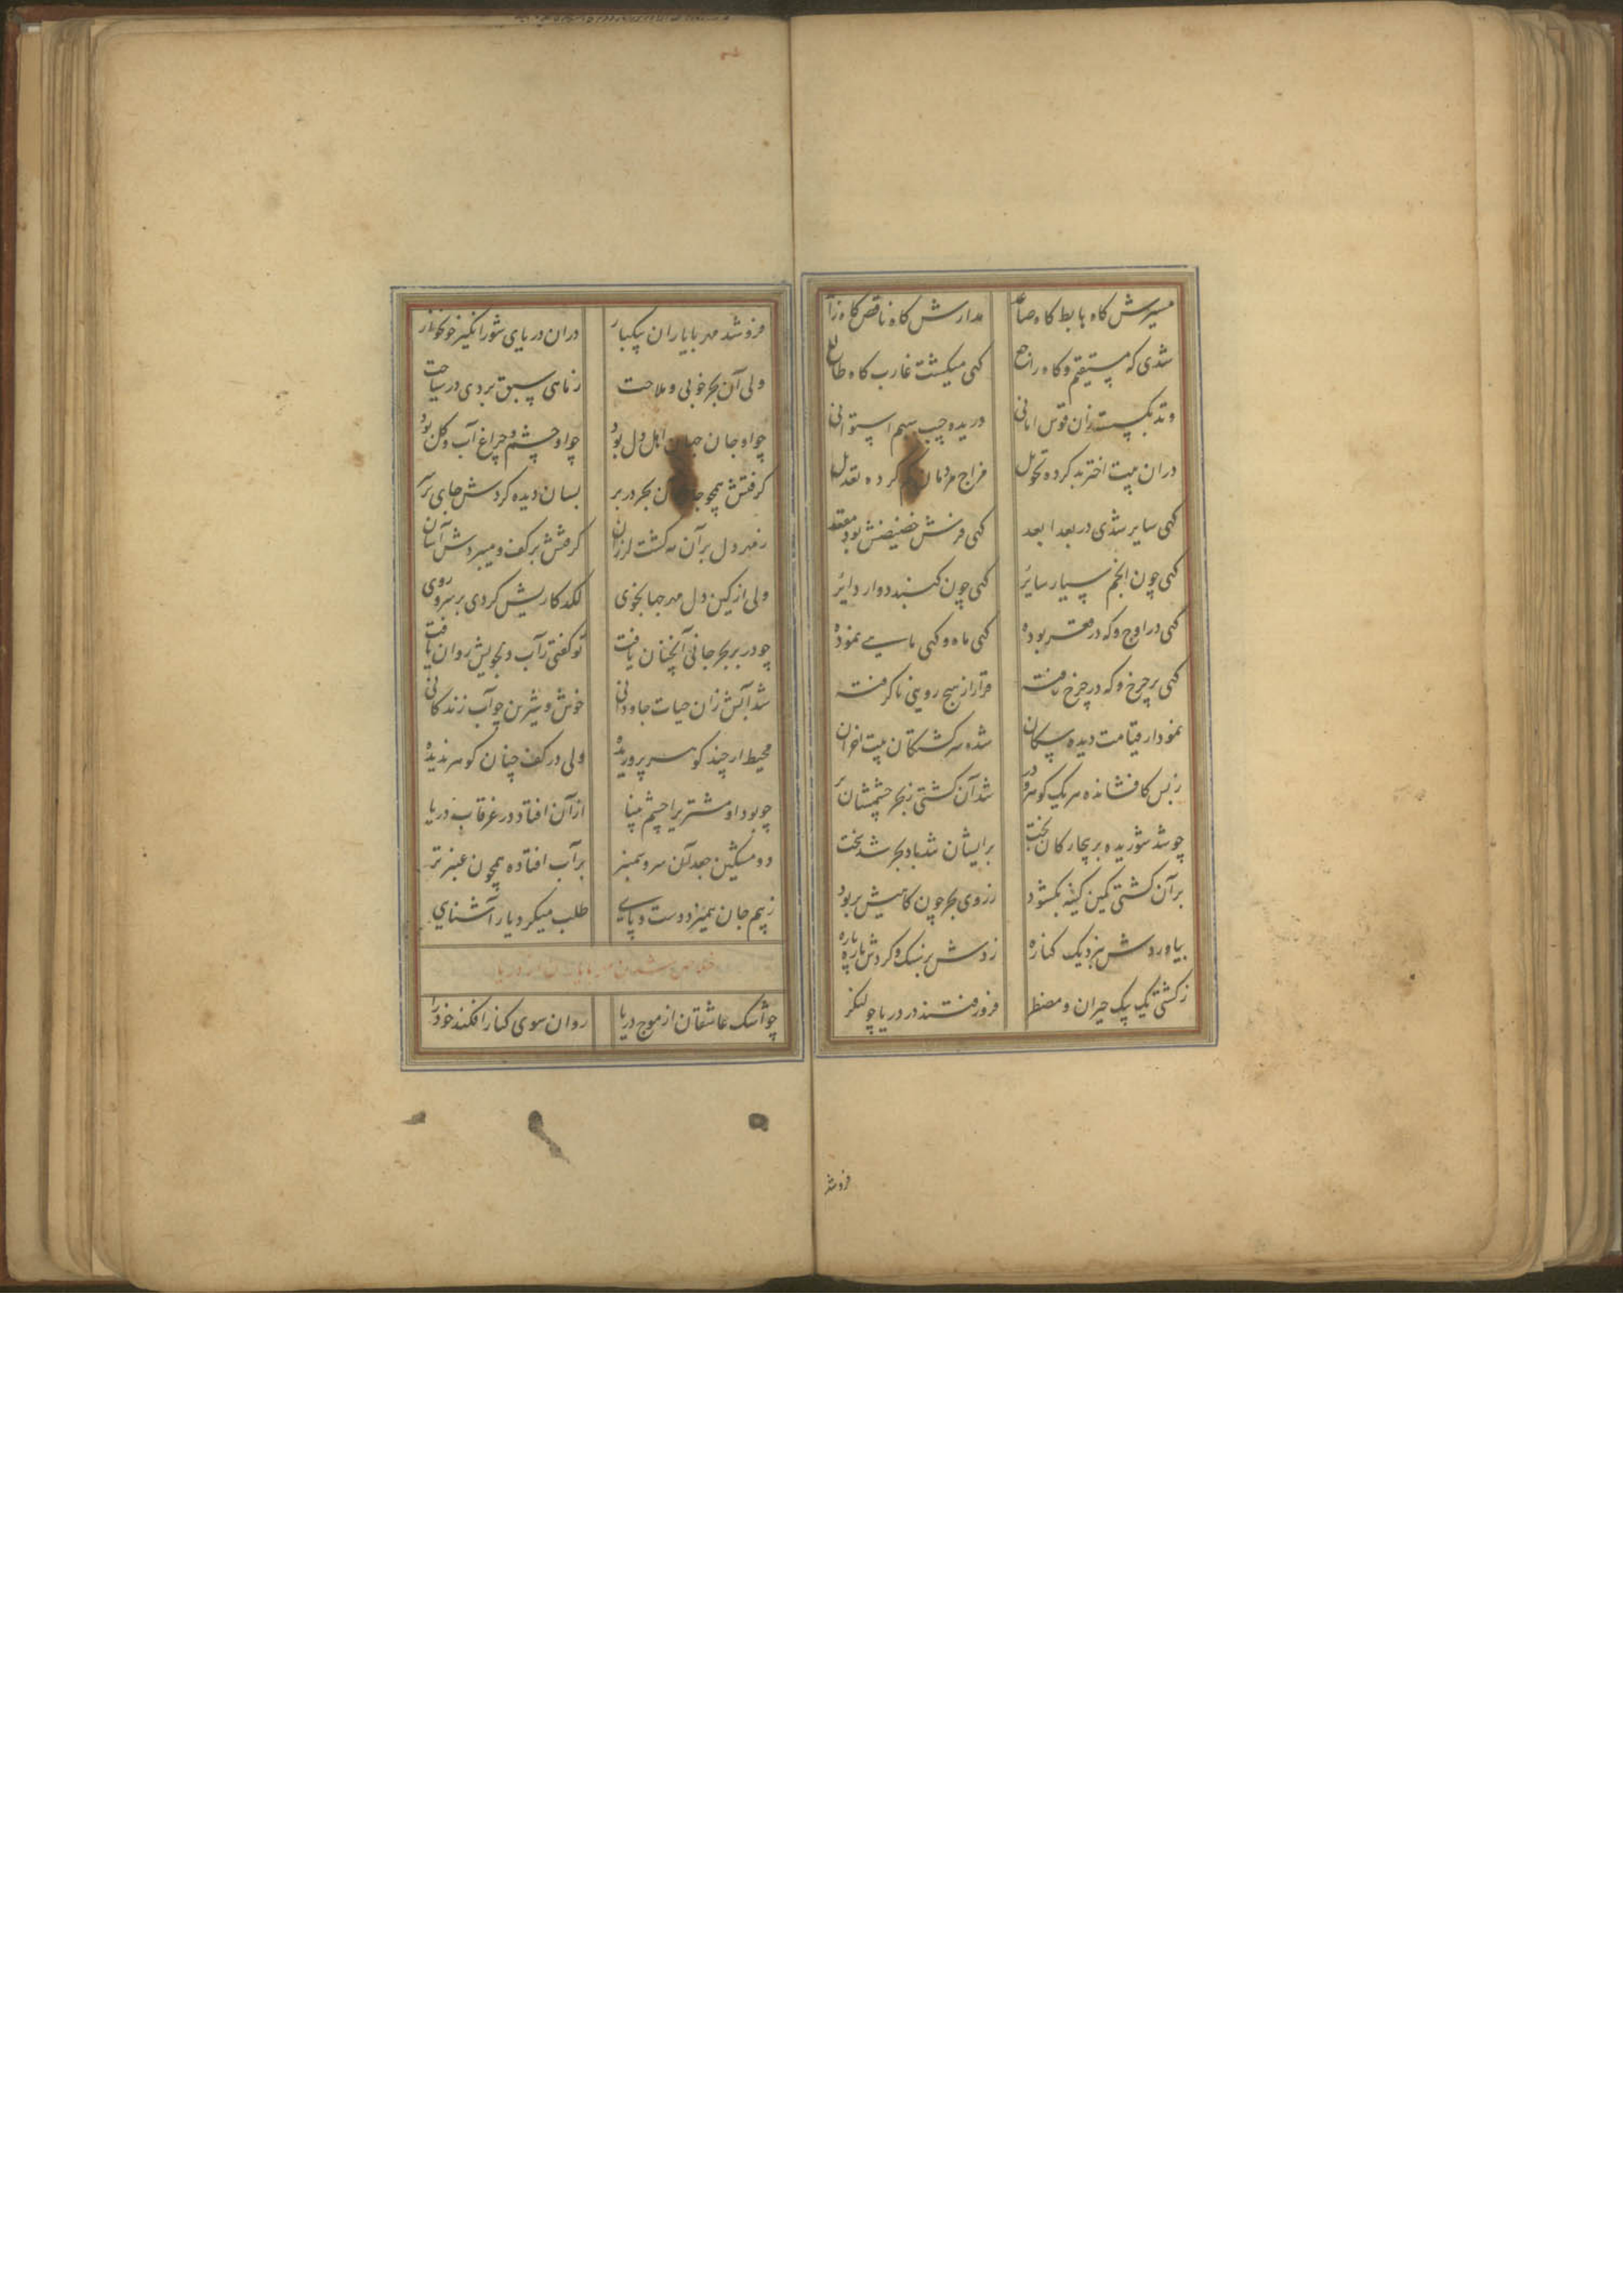 مسیرش گاه هابط گاه صاعد مدارش گاه ناقص گاه زاید
شدی که مستقیم و گاه راجع گهی میگشت غارب گاه طالع
وتد بگسسته زان قوس امانی دریده جیب سهم استوانی
دران بیت اختر بد کرده تحویل مزاج مردمان کرده تعدیل
گهی سایر شدی در بعد ابعد گهی فرش حضیضش بود مقعد
گهی چون انجم سیار سایر گهی چون گنبد دوار دایر
گهی در اوج و که در مقعر بوده گهی ماه و گهی ماهی نموده
گهی بر چرخ و که در چرخ رفته قرار از هیچ رویی ناگرفته
نمودار قیامت دیده سکان شده سرگشتگان بیت احزان
زبس کافشانده هر یک گوهر و در شد آن کشتی ز بحر چشمشان پر
چو شد شوریده بر بیچارگان بخت بر ایشان شد باد بحر شد سخت
بر آن کشتی کمین کینه بگشود ز روی بحر چون کاهیش بربود
بیاوردش بنزدیک کناره زدش بر سنگ و کردش پاره پاره
ز کشتی یک بیک حیران و مضطر فرو رفتند در دریا چو لنگر
فروشد
فروشد مهر با یاران بیکبار دران دریای شورانگیز خونخوار
ولی آن بحر خوبی و ملاحت ز ماهی سبق بردی در سباحت
چو او جان جهان اهل دل بود چو او چشم و چراغ آب و گل بود
گرفتش همچو جان بحر در بر بسان دیده کردش جای بر سر
ز مهر دل بر آن مه گشت لرزان گرفتش بر کف و میبردش آسان
ولی از کین دل مهر جهانجوی لگدکاریش کردی بر سر و روی
چو در بر بحر جانی آنچنان یافت تو گفتی ز آب دلجویش روان یافت
شد آبش زان حیات جاودانی خوش و شیرین چو آب زندگانی
محیط ار چند گوهر پروریده ولی در کف چنان گوهر ندیده
چو بود او مشتریرا چشم بینا از آن افتاد در غرقاب دریا
دو مشکین جعد آن سرو سمنبر بر آب افتاده همچون عنبر تر
ز بیم جان همیزد دست و پایی طلب میکرد یار آشنایی
خلاص شدن مهر با یاران از دریا
چو اشک عاشقان از موج دریا روان سوی کنار افکند خود را